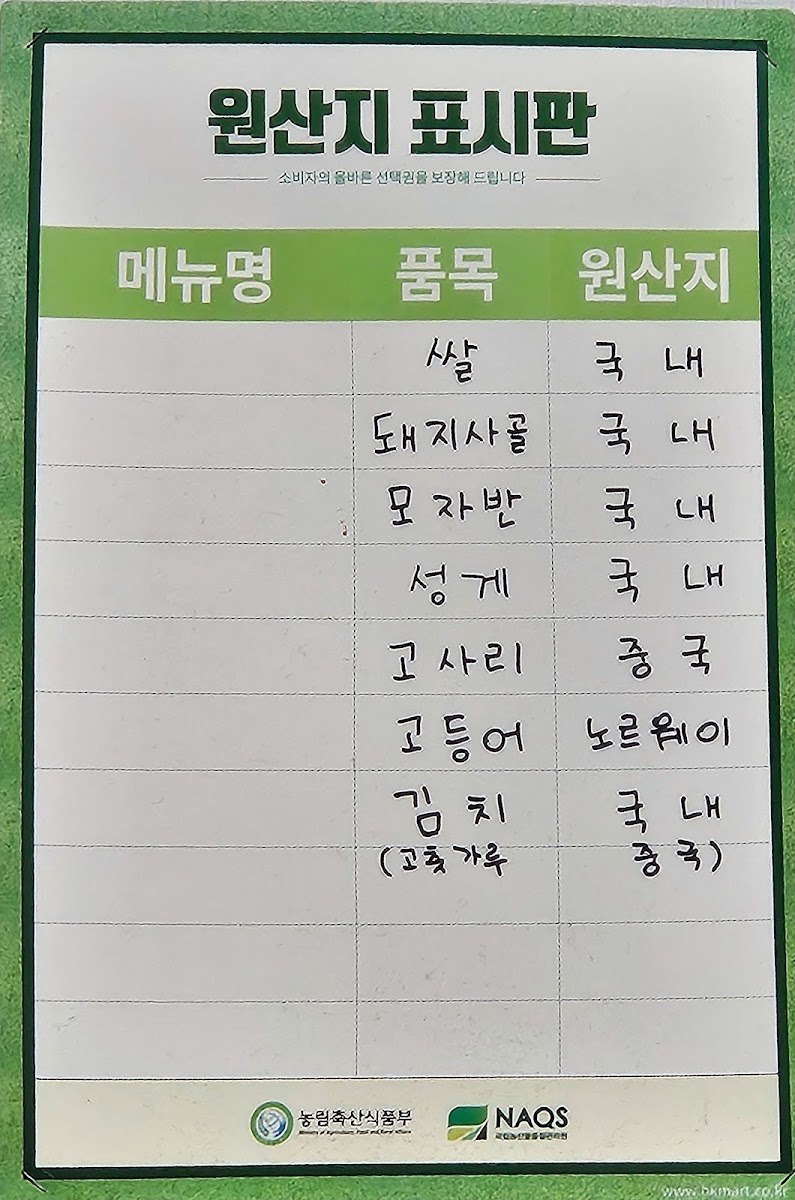 원산지 표시판
소비자의 올바른 선택권을 보장해 드립니다
메뉴명 품목 원산지
쌀 국내
돼지사골 국내
모자반 국내
성게 국내
고사리 중국
고등어 노르웨이
김치 국내
(고춧가루 중국)
농림축산식품부 NAQS
Ministry of Agriculture, Food and Rural Affairs 국립농산물품질관리원
www.bkmart.co.kr